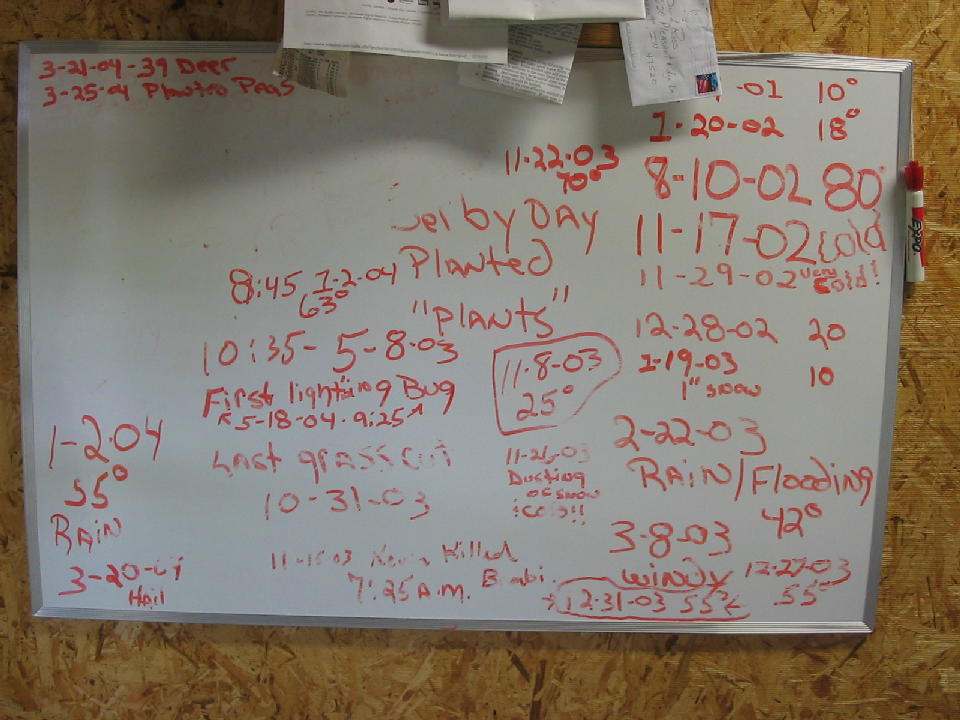 3-21-04-39 Deer
3-25-04 Planted Peas
-01 10°
1-20-02 18°
11-22-03
70°
8-10-02 80°
by DAY
11-17-02 cold
Planted
11-29-02 very cold!
8:45 1-2-04
63°
"Plants"
12-28-02 20
10:35- 5-8-03
1-19-03 10
1" snow
11-8-03
25°
First lightning Bug
5-18-04 - 9:25
2-22-03
RAIN/Flooding
42°
Last grass cut
10-31-03
11-26-03
Dusting
of snow
!Cold!!
1-2-04
55°
RAIN
3-8-03
windy
3-20-04
Hail
11-15-03 Kevin Killed
Bambi.
7:25 A.M.
12-27-03
55°
12-31-03 55°
EXPO
47520